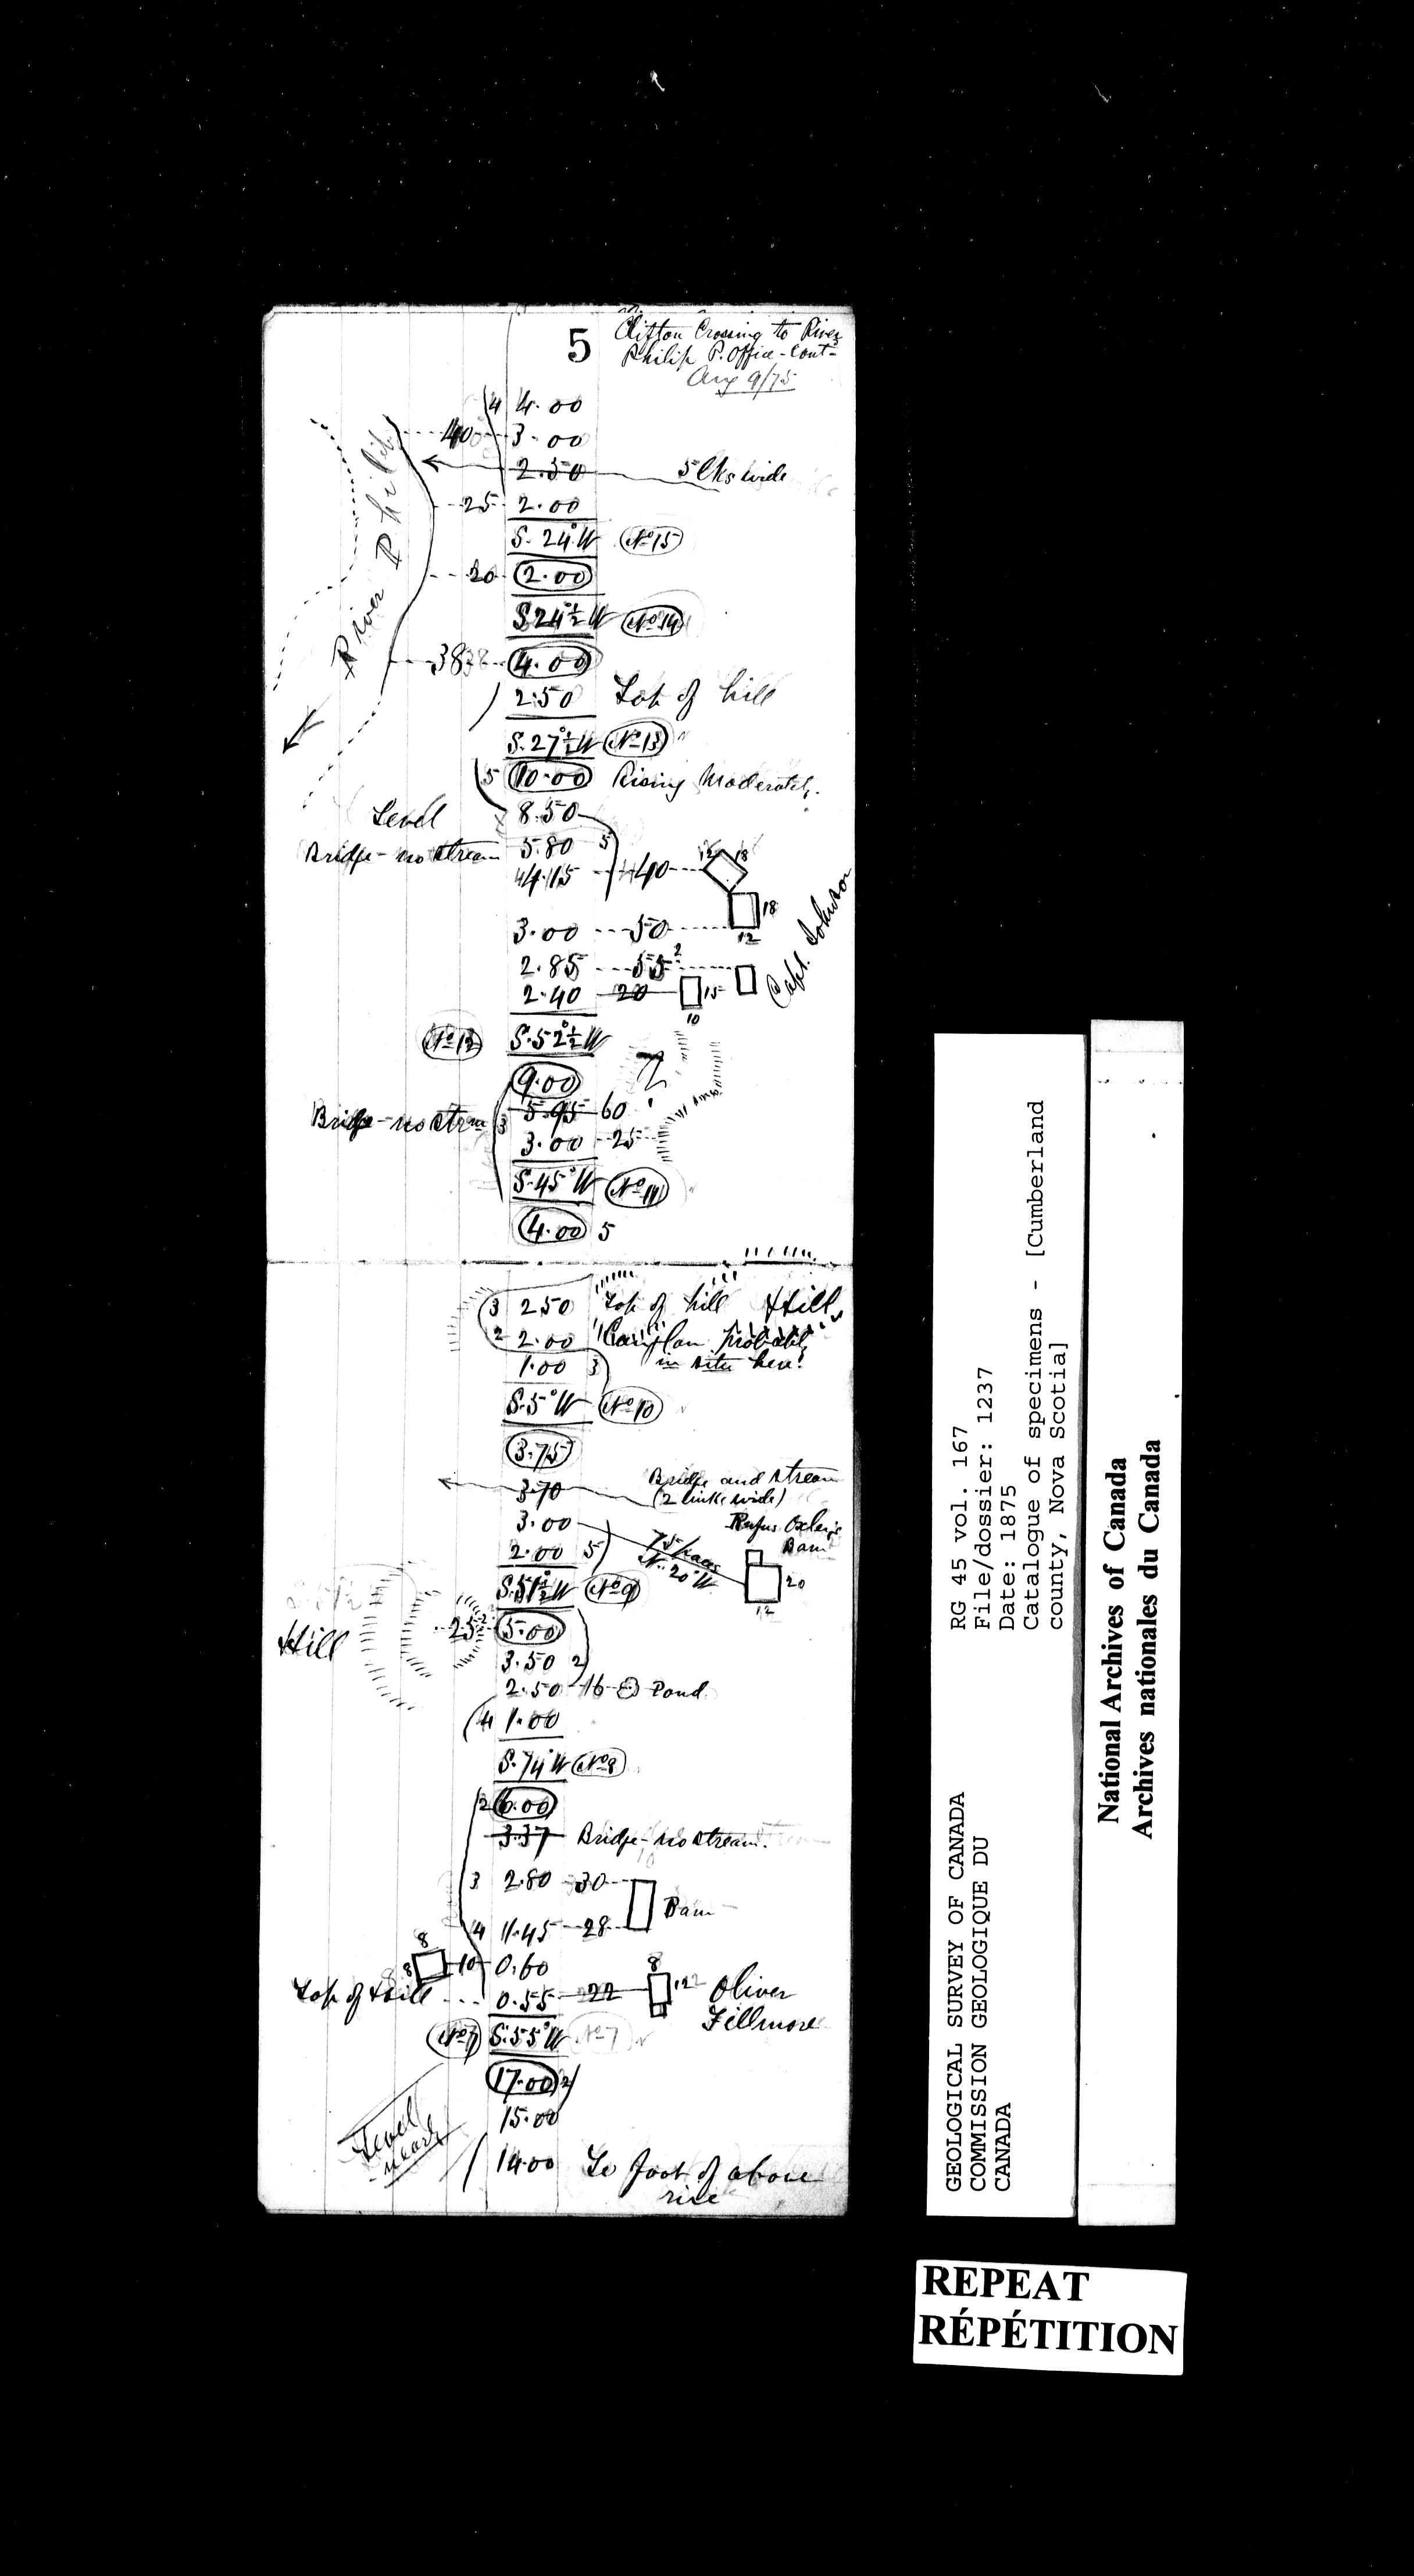 5
Clifton Crossing to River
Philip P. Office - Cont-
Aug 9/75
4 4.00
40 3.00
2.50 5 lks wide
25 2.00
River Philip
S. 24° W No 15
20 2.00
S 24°½ W No 14
38 4.00
2.50 Top of hill
S. 27°½ W No 13
5 10.00 Rising Moderately.
Level 8.50
Bridge - no stream 5.80 5
4.15 40 12 18
18
3.00 50 12
2.85 55
2.40 20 15
10
Capt. Johnson
No 12 S. 52°½ W
9.00
5.95 60
Bridge - no strm 3
3.00 25
S. 45° W No 11
4.00 5
3 2.50 Top of hill Hill
2 2.00 probably
1.00 3 in situ here!
S. 5° W No 10
3.75
3.70 Bridge and stream
(2 links wide)
3.00 Rufus Oxley's
Barn
2.00 5 75 paces
N. 20° W. 20
12
S. 51°½ W No 9
Hill 25 5.00
3.50 2
2.50 16 Pond
4 1.00
S. 74° W No 8
2 6.00
3.37 Bridge - no stream.
3 2.80 30
Barn
4 1.45 28
8 8 10 0.60
Top of hill 0.55 22 8 12 Oliver
Fillmore
No 7 S. 55° W No 7
17.00 2
15.00
Level
nearly
14.00 To foot of above
rise
RG 45 vol. 167
File/dossier: 1237
Date: 1875
Catalogue of specimens - [Cumberland
county, Nova Scotia]
GEOLOGICAL SURVEY OF CANADA
COMMISSION GEOLOGIQUE DU
CANADA
National Archives of Canada
Archives nationales du Canada
REPEAT
RÉPÉTITION